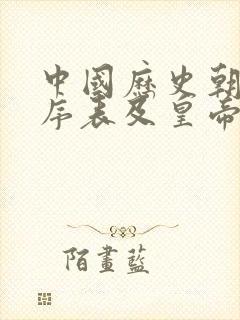 中國歷史朝
序表及皇帝
陌畫藍